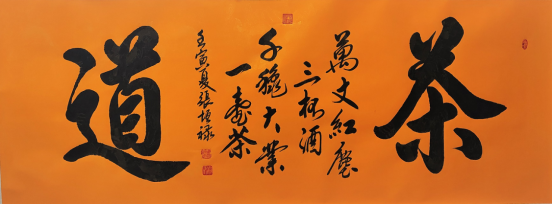 茶
萬丈紅塵
三杯酒
千龝大業
一壺茶
壬寅夏張
道